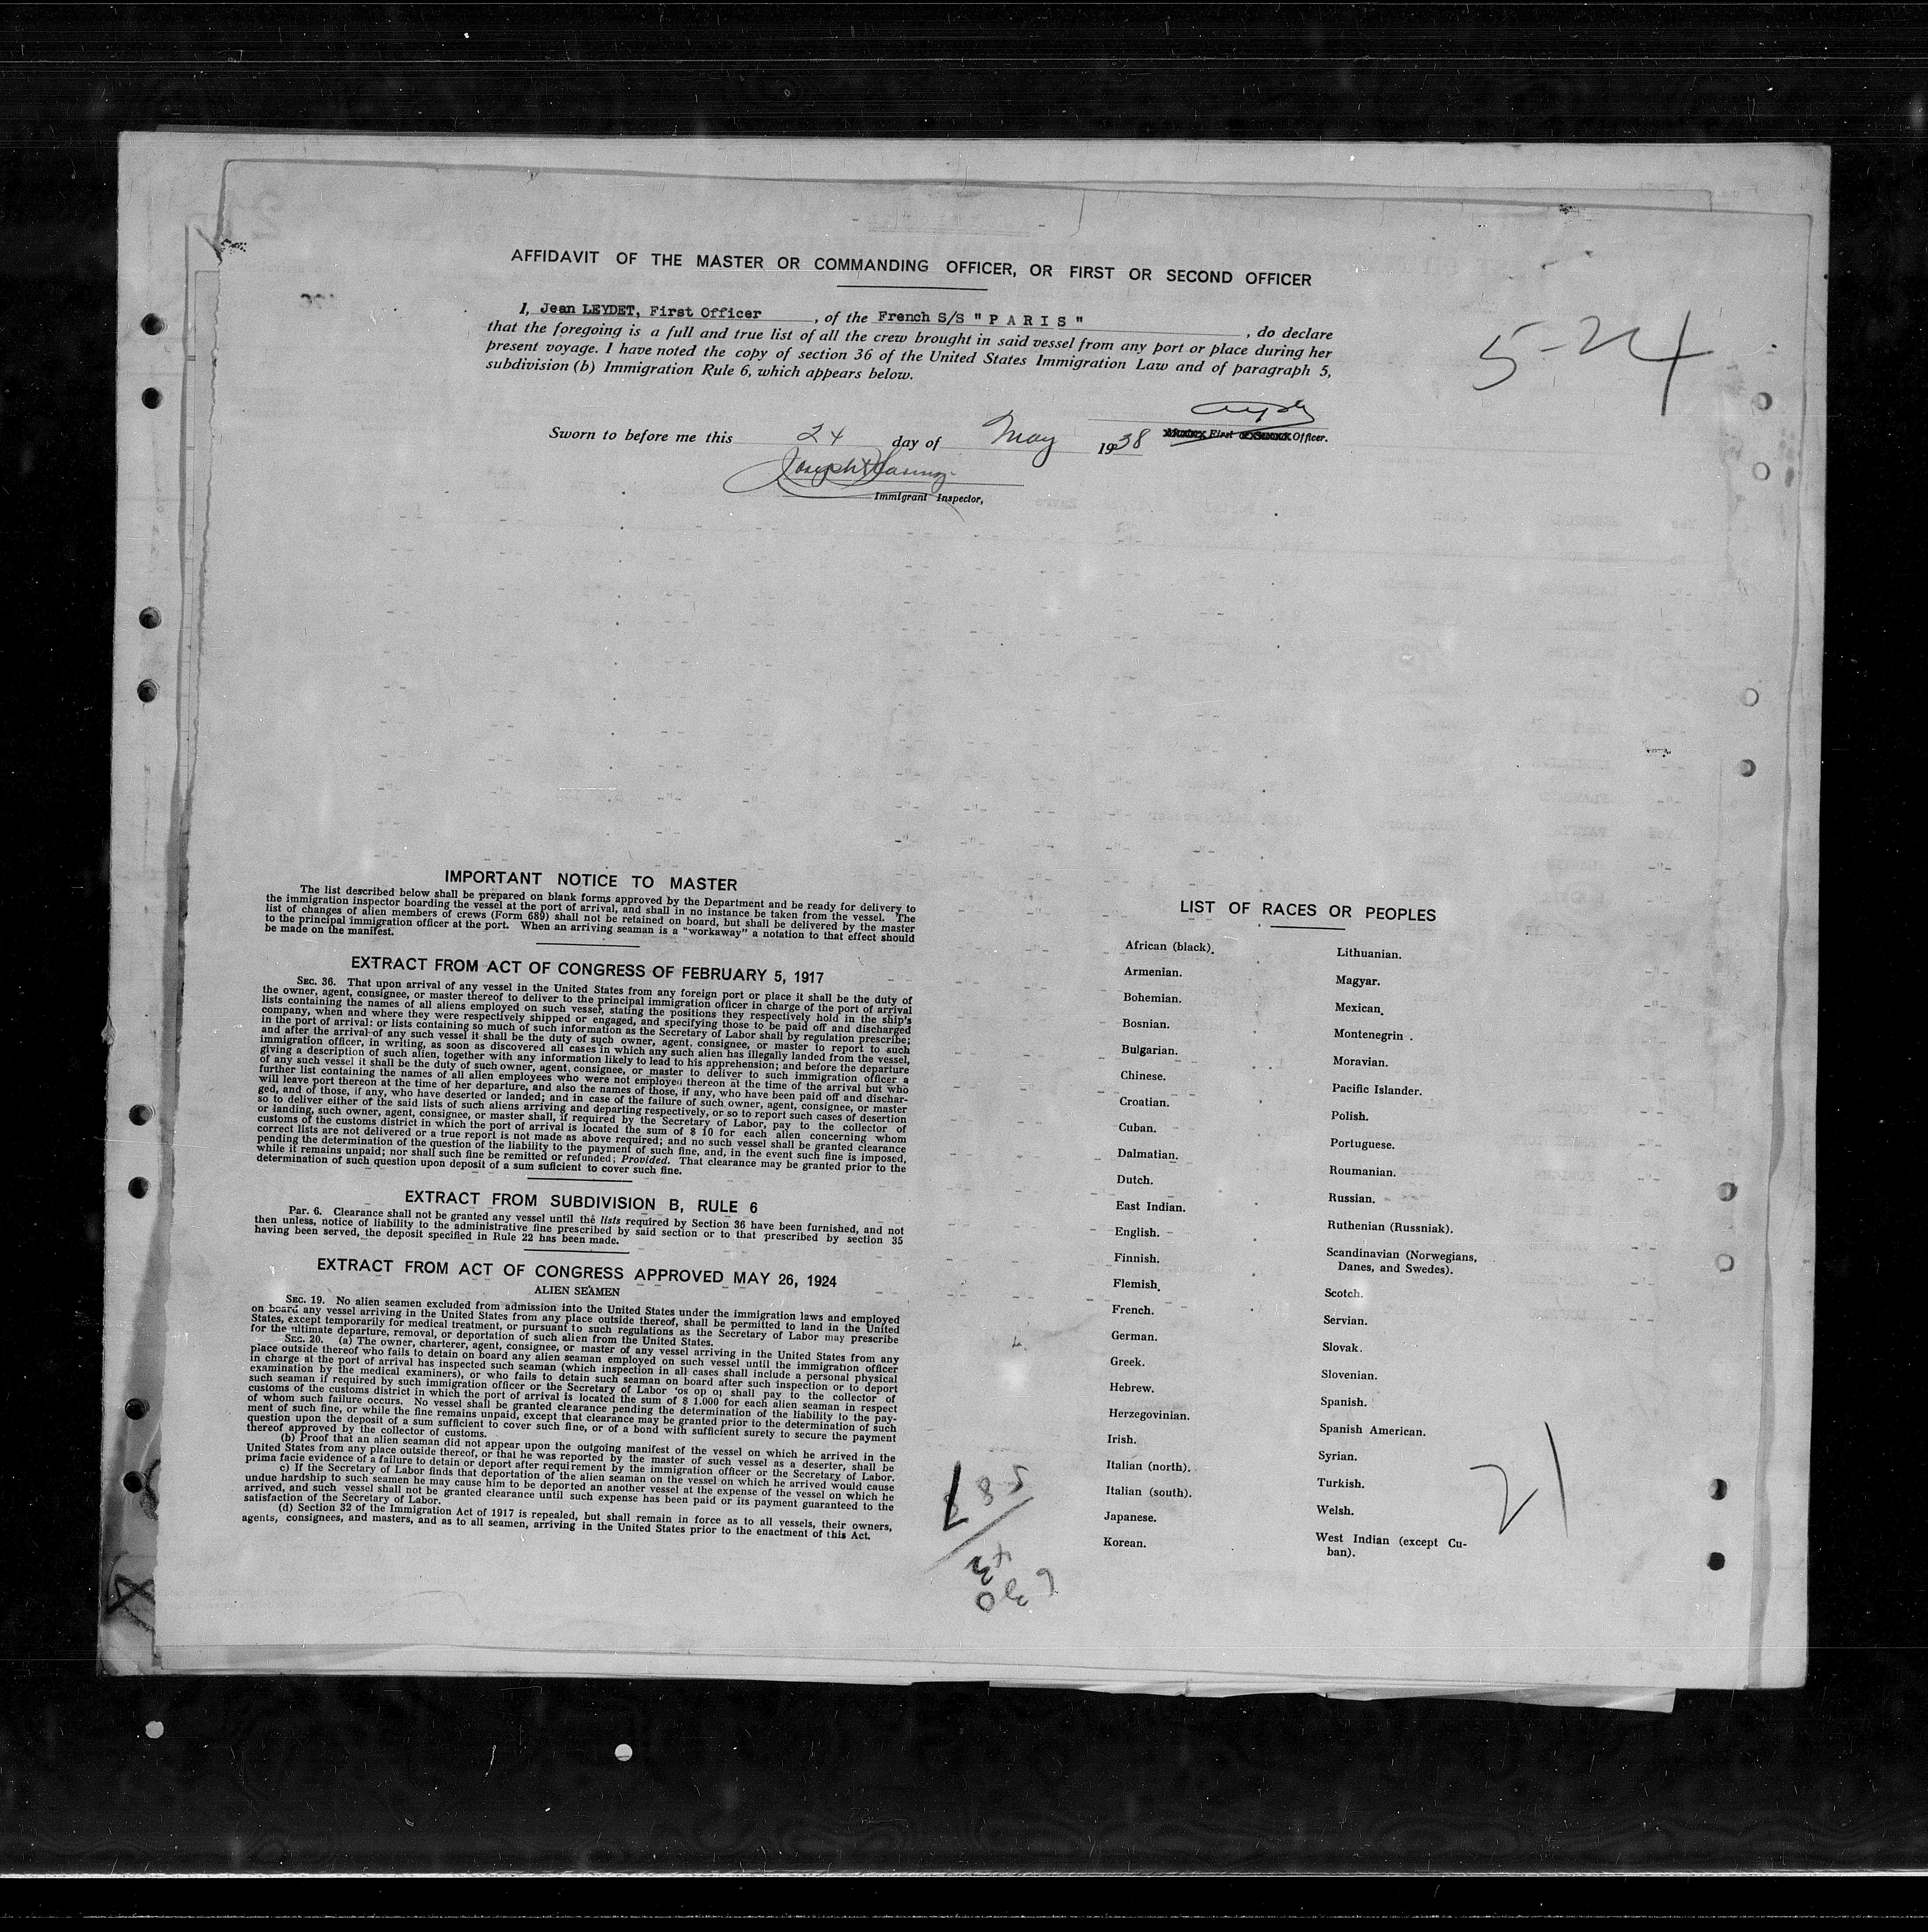 AFFIDAVIT OF THE MASTER OR COMMANDING OFFICER, OR FIRST OR SECOND OFFICER
I, Jean LEYDET, First Officer , of the French S/S " P A R I S " , do declare
that the foregoing is a full and true list of all the crew brought in said vessel from any port or place during her
present voyage. I have noted the copy of section 36 of the United States Immigration Law and of paragraph 5,
subdivision (b) Immigration Rule 6, which appears below.
5-24
Sworn to before me this 24 day of May 1938
First Officer.
Joseph
Immigrant Inspector,
IMPORTANT NOTICE TO MASTER
The list described below shall be prepared on blank forms approved by the Department and be ready for delivery to
the immigration inspector boarding the vessel at the port of arrival, and shall in no instance be taken from the vessel. The
list of changes of alien members of crews (Form 689) shall not be retained on board, but shall be delivered by the master
to the principal immigration officer at the port. When an arriving seaman is a "workaway" a notation to that effect should
be made on the manifest.
EXTRACT FROM ACT OF CONGRESS OF FEBRUARY 5, 1917
SEC. 36. That upon arrival of any vessel in the United States from any foreign port or place it shall be the duty of
the owner, agent, consignee, or master thereof to deliver to the principal immigration officer in charge of the port of arrival
lists containing the names of all aliens employed on such vessel, stating the positions they respectively hold in the ship's
company, when and where they were respectively shipped or engaged, and specifying those to be paid off and discharged
in the port of arrival: or lists containing so much of such information as the Secretary of Labor shall by regulation prescribe;
and after the arrival of any such vessel it shall be the duty of such owner, agent, consignee, or master to report to such
immigration officer, in writing, as soon as discovered all cases in which any such alien has illegally landed from the vessel,
giving a description of such alien, together with any information likely to lead to his apprehension; and before the departure
of any such vessel it shall be the duty of such owner, agent, consignee, or master to deliver to such immigration officer a
further list containing the names of all alien employees who were not employed thereon at the time of the arrival but who
will leave port thereon at the time of her departure, and also the names of those, if any, who have been paid off and dischar-
ged, and of those, if any, who have deserted or landed; and in case of the failure of such owner, agent, consignee, or master
so to deliver either of the said lists of such aliens arriving and departing respectively, or so to report such cases of desertion
or landing, such owner, agent, consignee, or master shall, if required by the Secretary of Labor, pay to the collector of
customs of the customs district in which the port of arrival is located the sum of $ 10 for each alien concerning whom
correct lists are not delivered or a true report is not made as above required; and no such vessel shall be granted clearance
pending the determination of the question of the liability to the payment of such fine, and, in the event such fine is imposed,
while it remains unpaid; nor shall such fine be remitted or refunded; Provided. That clearance may be granted prior to the
determination of such question upon deposit of a sum suficient to cover such fine.
EXTRACT FROM SUBDIVISION B, RULE 6
Par. 6. Clearance shall not be granted any vessel until the lists required by Section 36 have been furnished, and not
then unless, notice of liability to the administrative fine prescribed by said section or to that prescribed by section 35
having been served, the deposit specified in Rule 22 has been made.
EXTRACT FROM ACT OF CONGRESS APPROVED MAY 26, 1924
ALIEN SEAMEN
SEC. 19. No alien seamen excluded from admission into the United States under the immigration laws and employed
on board any vessel arriving in the United States from any place outside thereof, shall be permitted to land in the United
States, except temporarily for medical treatment, or pursuant to such regulations as the Secretary of Labor may prescribe
for the ultimate departure, removal, or deportation of such alien from the United States.
SEC. 20. (a) The owner, charterer, agent, consignee, or master of any vessel arriving in the United States from any
place outside thereof who fails to detain on board any alien seaman employed on such vessel until the immigration officer
in charge at the port of arrival has inspected such seaman (which inspection in all cases shall include a personal physical
examination by the medical examiners), or who fails to detain such seaman on board after such inspection or to deport
such seaman if required by such immigration officer or the Secretary of Labor 'os op o1 shall pay to the collector of
customs of the customs district in which the port of arrival is located the sum of $ 1.000 for each alien seaman in respect
of whom such failure occurs. No vessel shall be granted clearance pending the determination of the liability to the pay-
ment of such fine, or while the fine remains unpaid, except that clearance may be granted prior to the determination of such
question upon the deposit of a sum sufficient to cover such fine, or of a bond with sufficient surety to secure the payment
thereof approved by the collector of customs.
(b) Proof that an alien seaman did not appear upon the outgoing manifest of the vessel on which he arrived in the
United States from any place outside thereof, or that he was reported by the master of such vessel as a deserter, shall be
prima facie evidence of a failure to detain or deport after requirement by the immigration officer or the Secretary of Labor.
c) If the Secretary of Labor finds that deportation of the alien seaman on the vessel on which he arrived would cause
undue hardship to such seamen he may cause him to be deported an another vessel at the expense of the vessel on which he
arrived, and such vessel shall not be granted clearance until such expense has been paid or its payment guaranteed to the
satisfaction of the Secretary of Labor.
(d) Section 32 of the Immigration Act of 1917 is repealed, but shall remain in force as to all vessels, their owners,
agents, consignees, and masters, and as to all seamen, arriving in the United States prior to the enactment of this Act.
LIST OF RACES OR PEOPLES
African (black).
Armenian.
Bohemian.
Bosnian.
Bulgarian.
Chinese.
Croatian.
Cuban.
Dalmatian.
Dutch.
East Indian.
English.
Finnish.
Flemish.
French.
German.
Greek.
Hebrew.
Herzegovinian.
Irish.
Italian (north).
Italian (south).
Japanese.
Korean.
Lithuanian.
Magyar.
Mexican.
Montenegrin .
Moravian.
Pacific Islander.
Polish.
Portuguese.
Roumanian.
Russian.
Ruthenian (Russniak).
Scandinavian (Norwegians,
Danes, and Swedes).
Scotch.
Servian.
Slovak.
Slovenian.
Spanish.
Spanish American.
Syrian.
Turkish.
Welsh.
West Indian (except Cu-
ban).
21